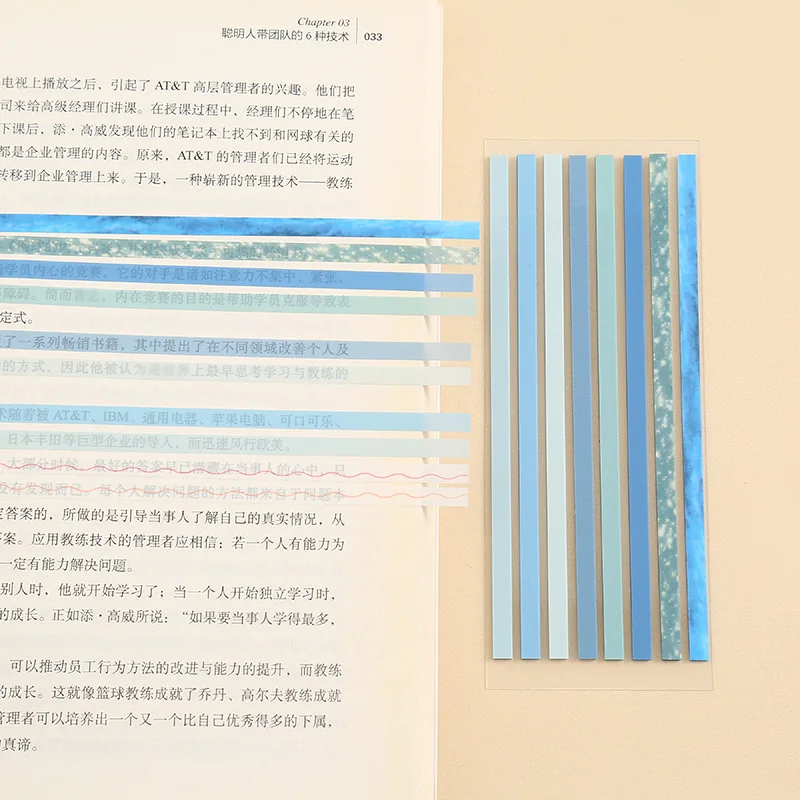 Chapter 03
聪明人带团队的 6 种技术 033
电视上播放之后，引起了 AT&T 高层管理者的兴趣。他们把
司来给高级经理们讲课。在授课过程中，经理们不停地在笔
下课后，添·高威发现他们的笔记本上找不到和网球有关的
都是企业管理的内容。原来，AT&T 的管理者们已经将运动
转移到企业管理上来。于是，一种崭新的管理技术——教练
学员内心的竞赛，它的对手是诸如注意力不集中、紧张、
障碍。简而言之，内在竞赛的目的是帮助学员克服导致表
定式。
了一系列畅销书籍，其中提出了在不同领域改善个人及
的方式，因此他被认为是世界上最早思考学习与教练的
随着被 AT&T、IBM、通用电器、苹果电脑、可口可乐、
日本丰田等巨型企业的导入，而迅速风行欧美。
大部分时候，最好的答案早已潜藏在当事人的心中，只
没有发现而已。每个人解决问题的方法都来自于问题本
答案的，所做的是引导当事人了解自己的真实情况，从
案。应用教练技术的管理者应相信：若一个人有能力为
一定有能力解决问题。
别人时，他就开始学习了；当一个人开始独立学习时，
的成长。正如添·高威所说：“如果要当事人学得最多，
可以推动员工行为方法的改进与能力的提升，而教练
的成长。这就像篮球教练成就了乔丹、高尔夫教练成就
管理者可以培养出一个又一个比自己优秀得多的下属，
真谛。